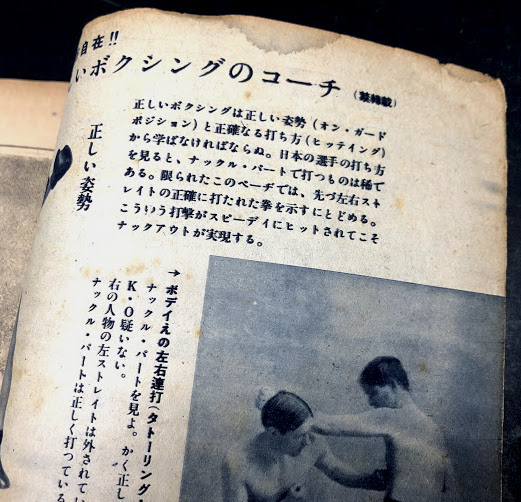 自在!!
いボクシングのコーチ（禁轉載）
正しいボクシングは正しい姿勢（オン・ガード
ポジション）と正確なる打ち方（ヒッティング）
から学ばなければならぬ。日本の選手の打ち方
を見ると、ナックル・パートで打つものは稀で
ある。限られたこのページでは、先づ左右スト
レイトの正確に打たれた拳を示すにとどめる。
こういう打撃がスピーデイにヒットされてこそ
ナックアウトが実現する。
正しい姿勢
→ボデイえの左右連打（タトーリング
ナックル・パートを見よ。かく正し
K・O疑いない。
右の人物の左ストレイトは外されてい
ナックル・パートは正しく打つている